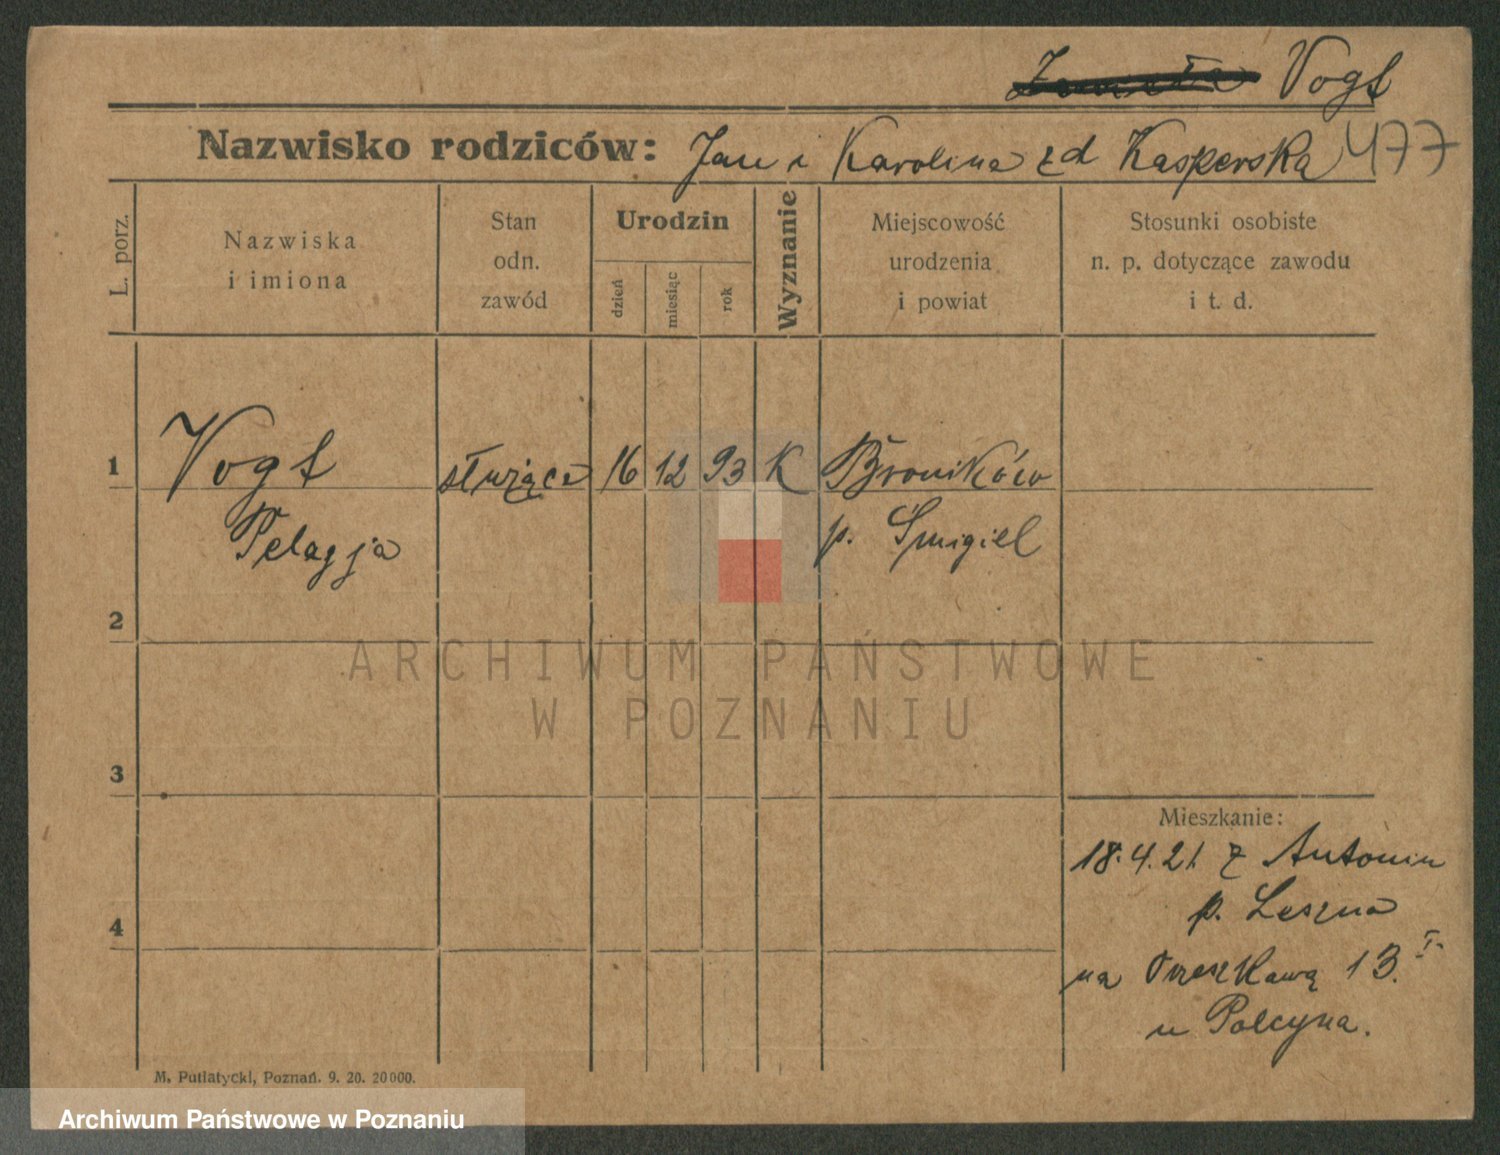 Vogt
Nazwisko rodziców: Jan i Karolina zd Kasperska 477
L. porz.
Nazwiska
i imiona
Stan
odn.
zawód
Urodzin
dzień
miesiąc
rok
Wyznanie
Miejscowość
urodzenia
i powiat
Stosunki osobiste
n. p. dotyczące zawodu
i t. d.
1 Vogt służąca 16 12 93 K Broników
Pelagja p. Śmigiel
2
ARCHIWUM PAŃSTWOWE
W POZNANIU
3
Mieszkanie:
18.4.21. z Antonin
p. Leszna
4
na Orzeszkową 13. I.
u Polcyna.
M. Putiatycki, Poznań. 9. 20. 20000.
Archiwum Państwowe w Poznaniu